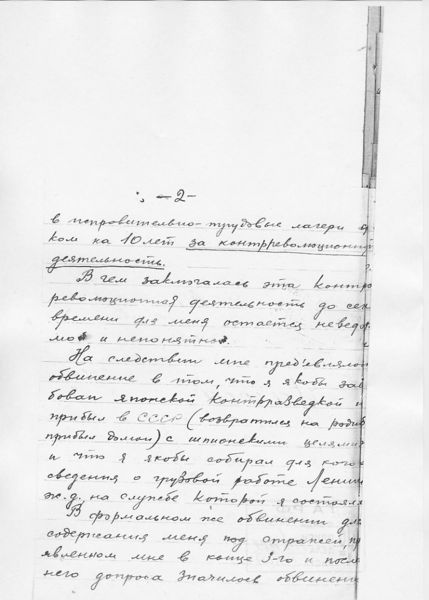 -2-
в исправительно-трудовые лагери ср
ком на 10 лет за контрреволюционную
деятельность.
В чем заключалась эта контр
революционная деятельность до сего
времени для меня остается неведо
мо и непонятно.
На следствии мне пред'являлось
обвинение в том, что я якобы зав
бован японской контрразведкой и
прибыл в СССР (возвратился на роди
прибыл домой) с шпионскими целями
и что я якобы собирал для кого-
сведения о грузовой работе Ленин
ж.д., на службе которой я состоял.
В формальном же обвинении для
содержания меня под стражей, пр
явленном мне в конце 3-го и после
него допроса значилось обвинени